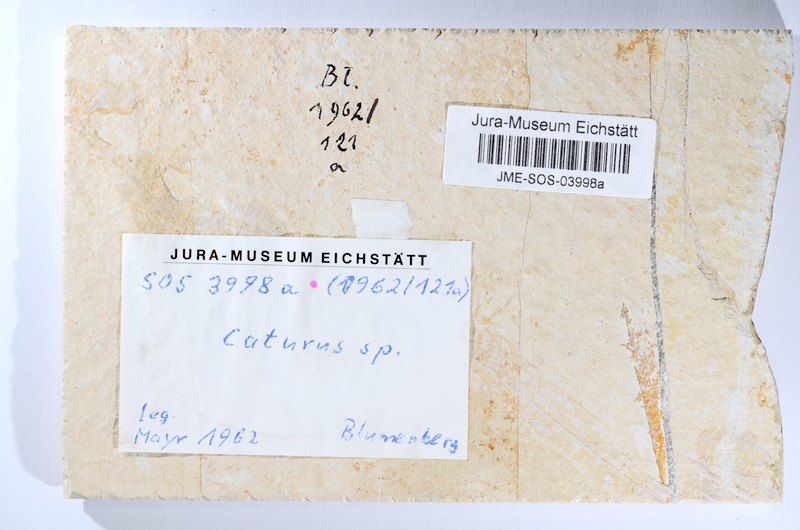 Bl.
1962/
121
a
Jura-Museum Eichstätt
JME-SOS-03998a
JURA-MUSEUM EICHSTÄTT
SOS 3998a • (1962/121a)
Caturus sp.
leg.
Mayr 1962 Blumenberg